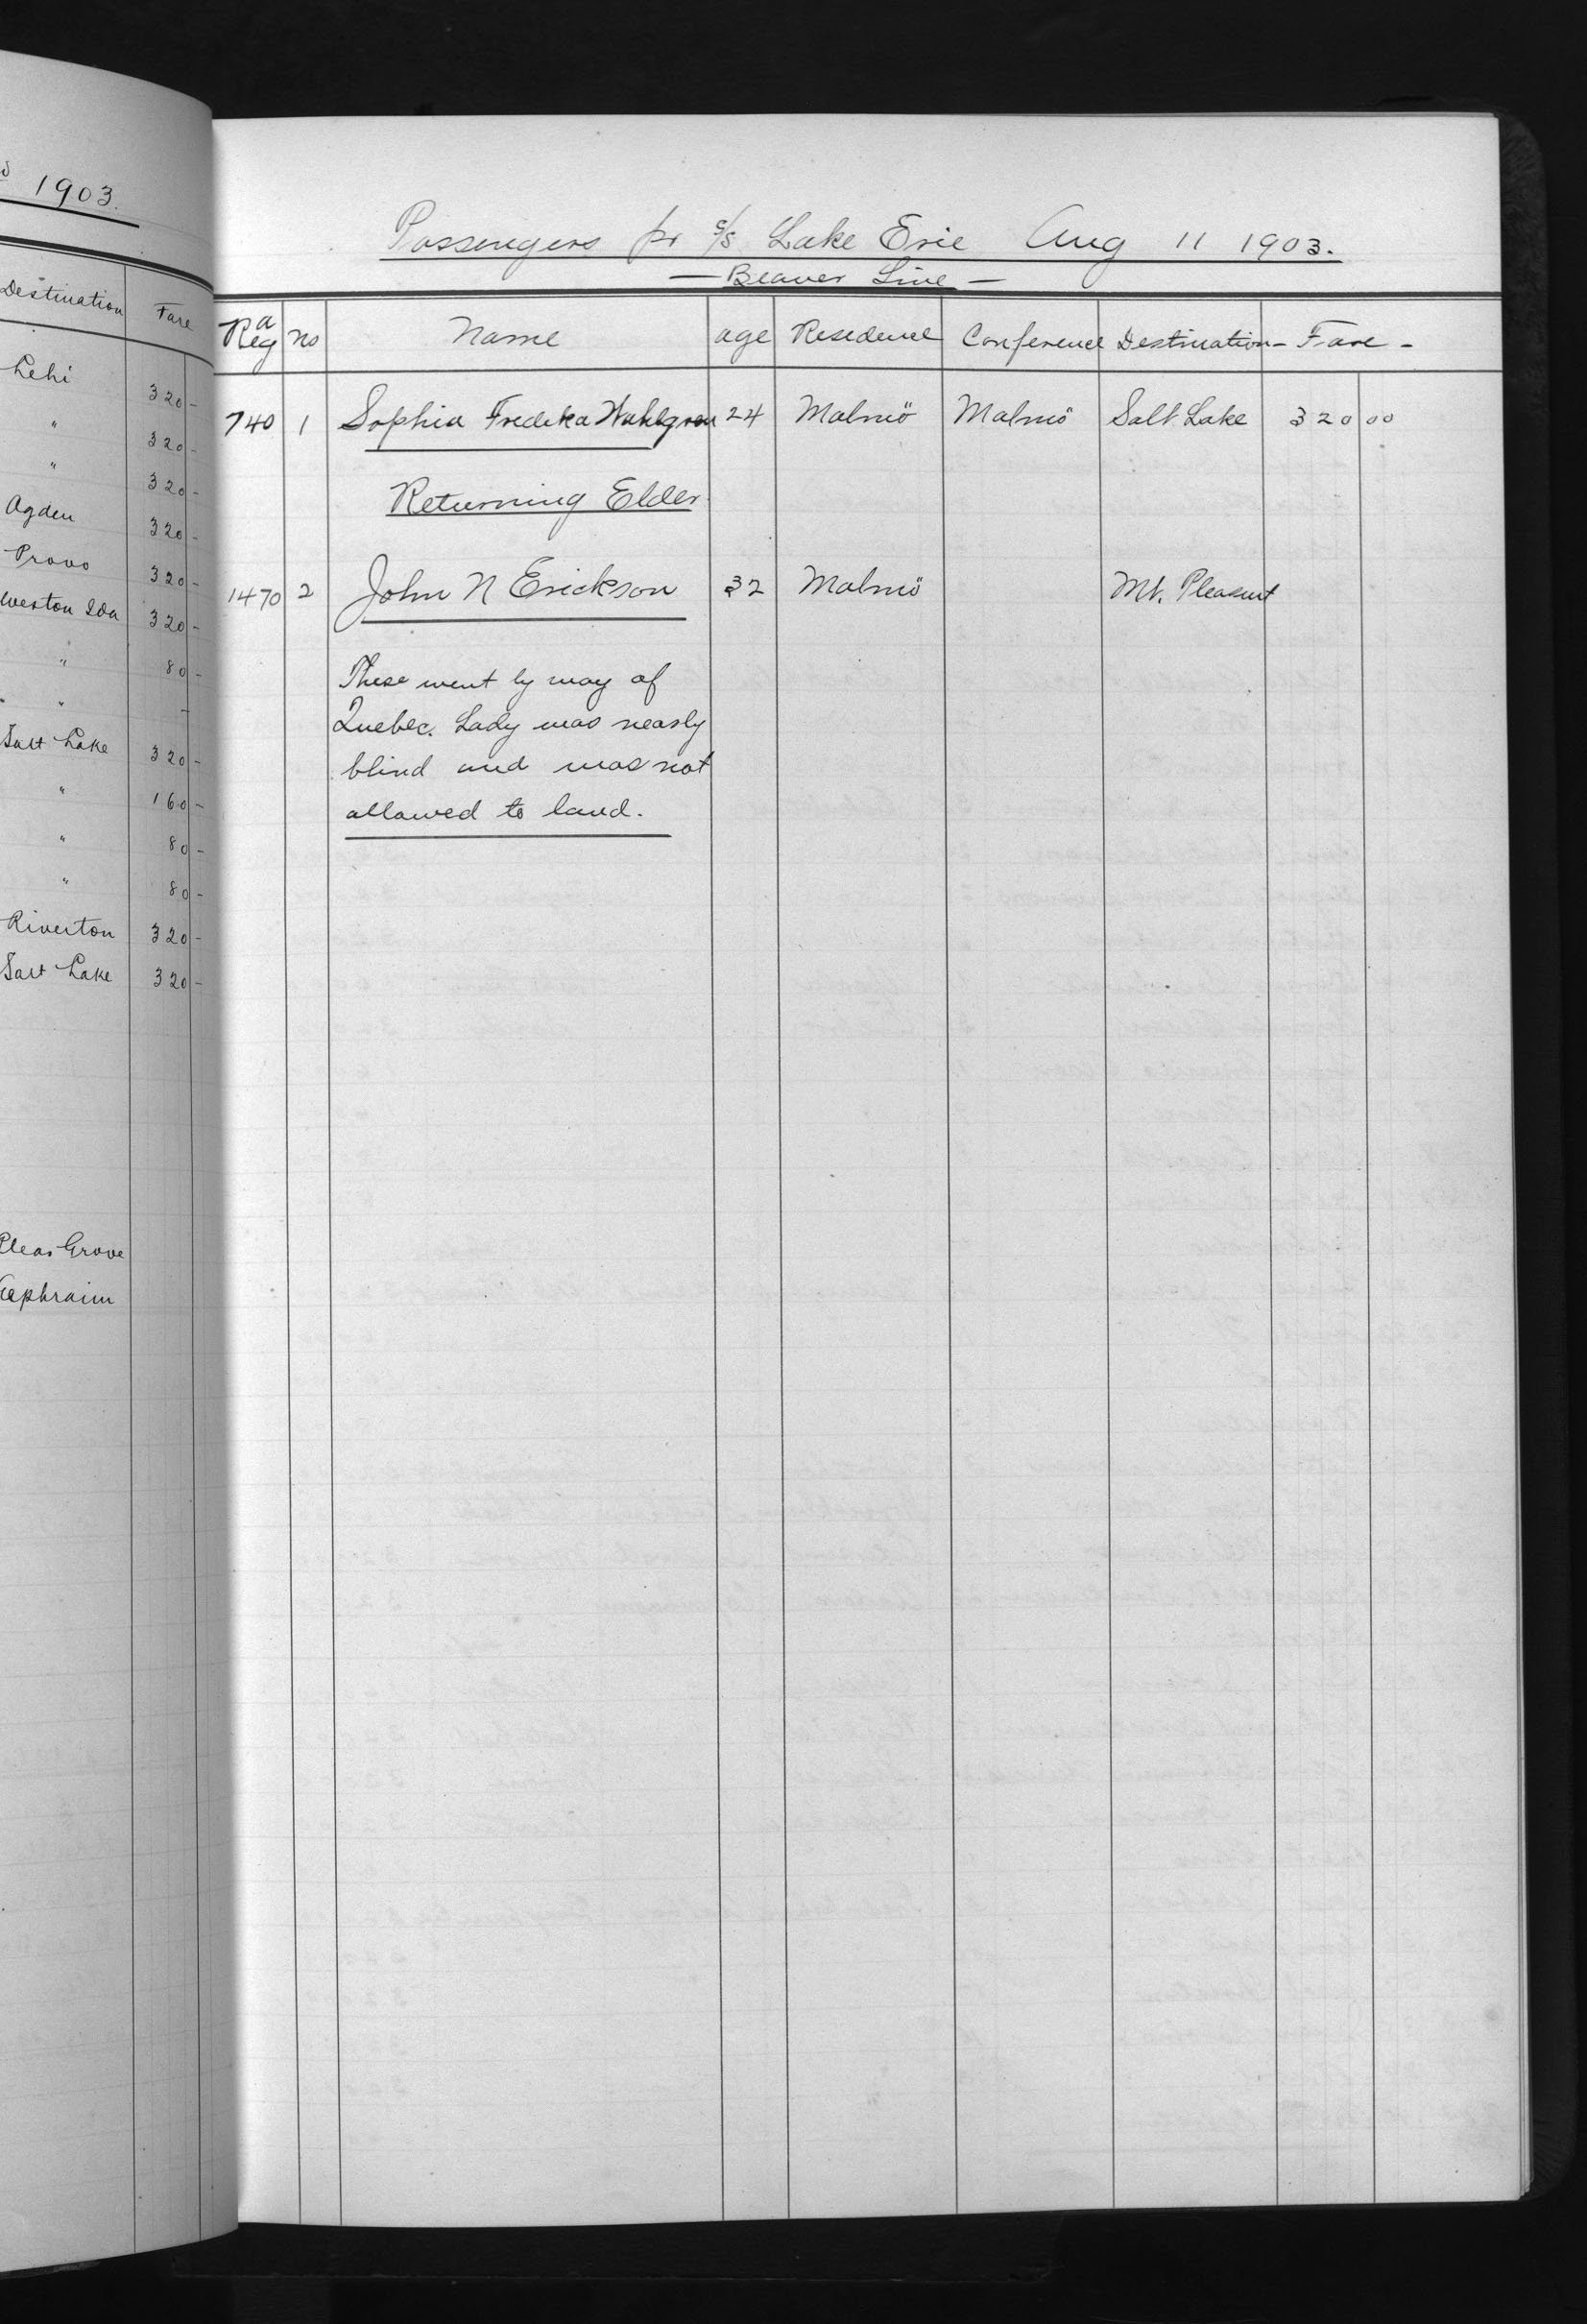 1903.
Destination Fare
Lehi 320 -
" 320 -
" 320 -
Ogden 320 -
Provo 320 -
Weston Ida 320 -
" 80 -
" -
Salt Lake 320 -
" 160 -
" 80 -
" 80 -
Riverton 320 -
Salt Lake 320 -
Pleas Grove
Ephraim
Passengers pr s/s Lake Erie Aug 11 1903.
— Beaver Line —
Reg a no Name age Residence Conference Destination - Fare -
740 1 Sophia Fredrika Wahlgren 24 Malmö Malmö Salt Lake 320 00
Returning Elder
1470 2 John N Erickson 32 Malmö Mt. Pleasant
These went by way of
Quebec. Lady was nearly
blind and was not
allowed to land.